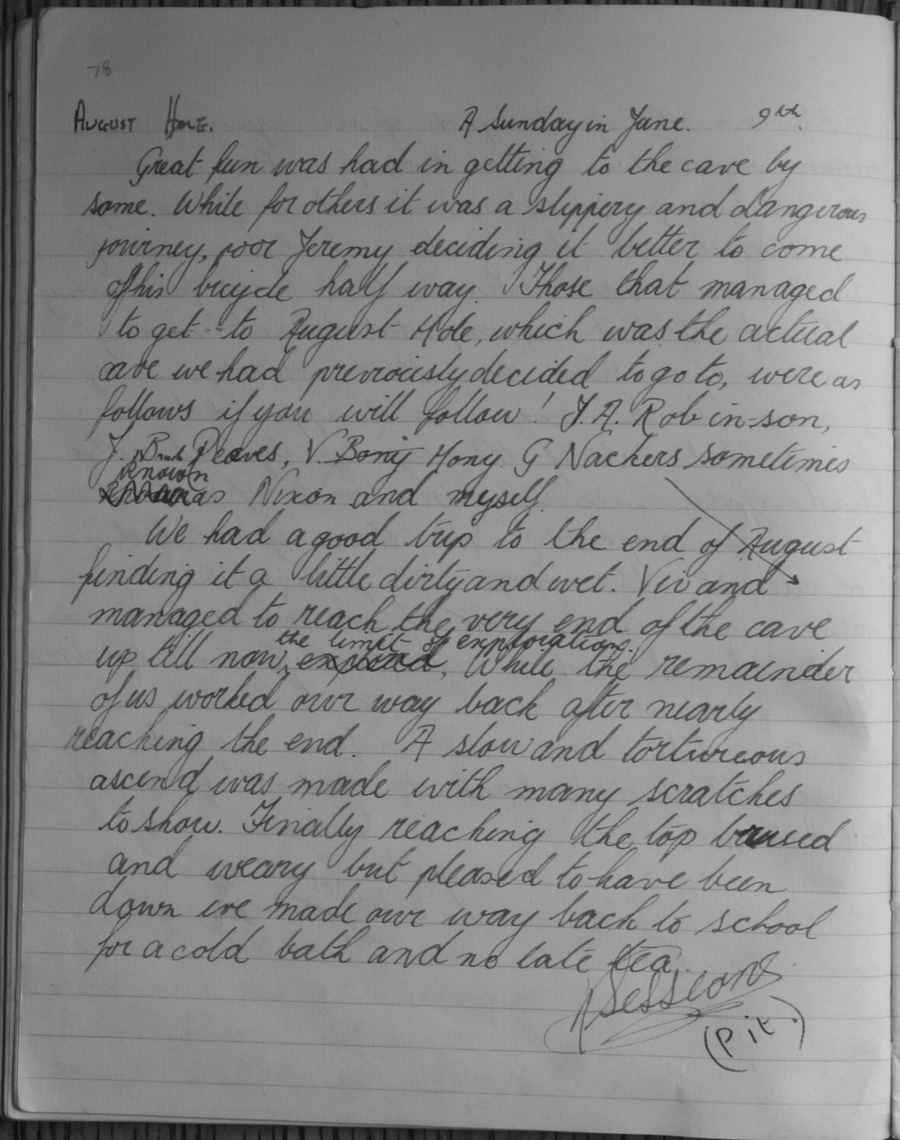 78
August Hole. A Sunday in June. 9th.
Great fun was had in getting to the cave by
some. While for others it was a slippery and dangerous
journey, poor Jeremy deciding it better to come
of his bicycle half way. Those that managed
to get to August Hole, which was the actual
cave we had previously decided to go to, were as
follows if you will follow! J.A. Robin-son,
J. Deaves, V. Bony Hony G Nackers sometimes
known
as Nixon and myself.
We had a good trip to the end of August
finding it a little dirty and wet. Viv and
managed to reach the very end of the cave
the limit of exploration.
up till now, While the remainder
of us worked our way back after nearly
reaching the end. A slow and tortureous
ascend was made with many scratches
to show. Finally reaching the top brused
and weary but pleased to have been
down we made our way back to school
for a cold bath and no late tea.
Sessions
(Pit.)